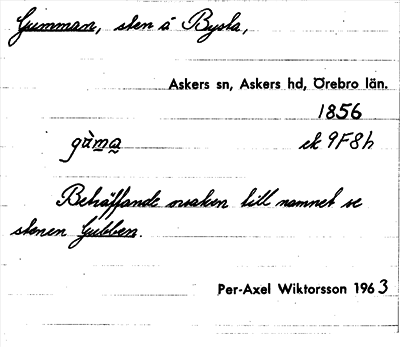 Gumman, sten å Bysta,
Askers sn, Askers hd, Örebro län.
1856
gùma ek 9F8h
Beträffande orsaken till namnet se
stenen Gubben.
Per-Axel Wiktorsson 1963